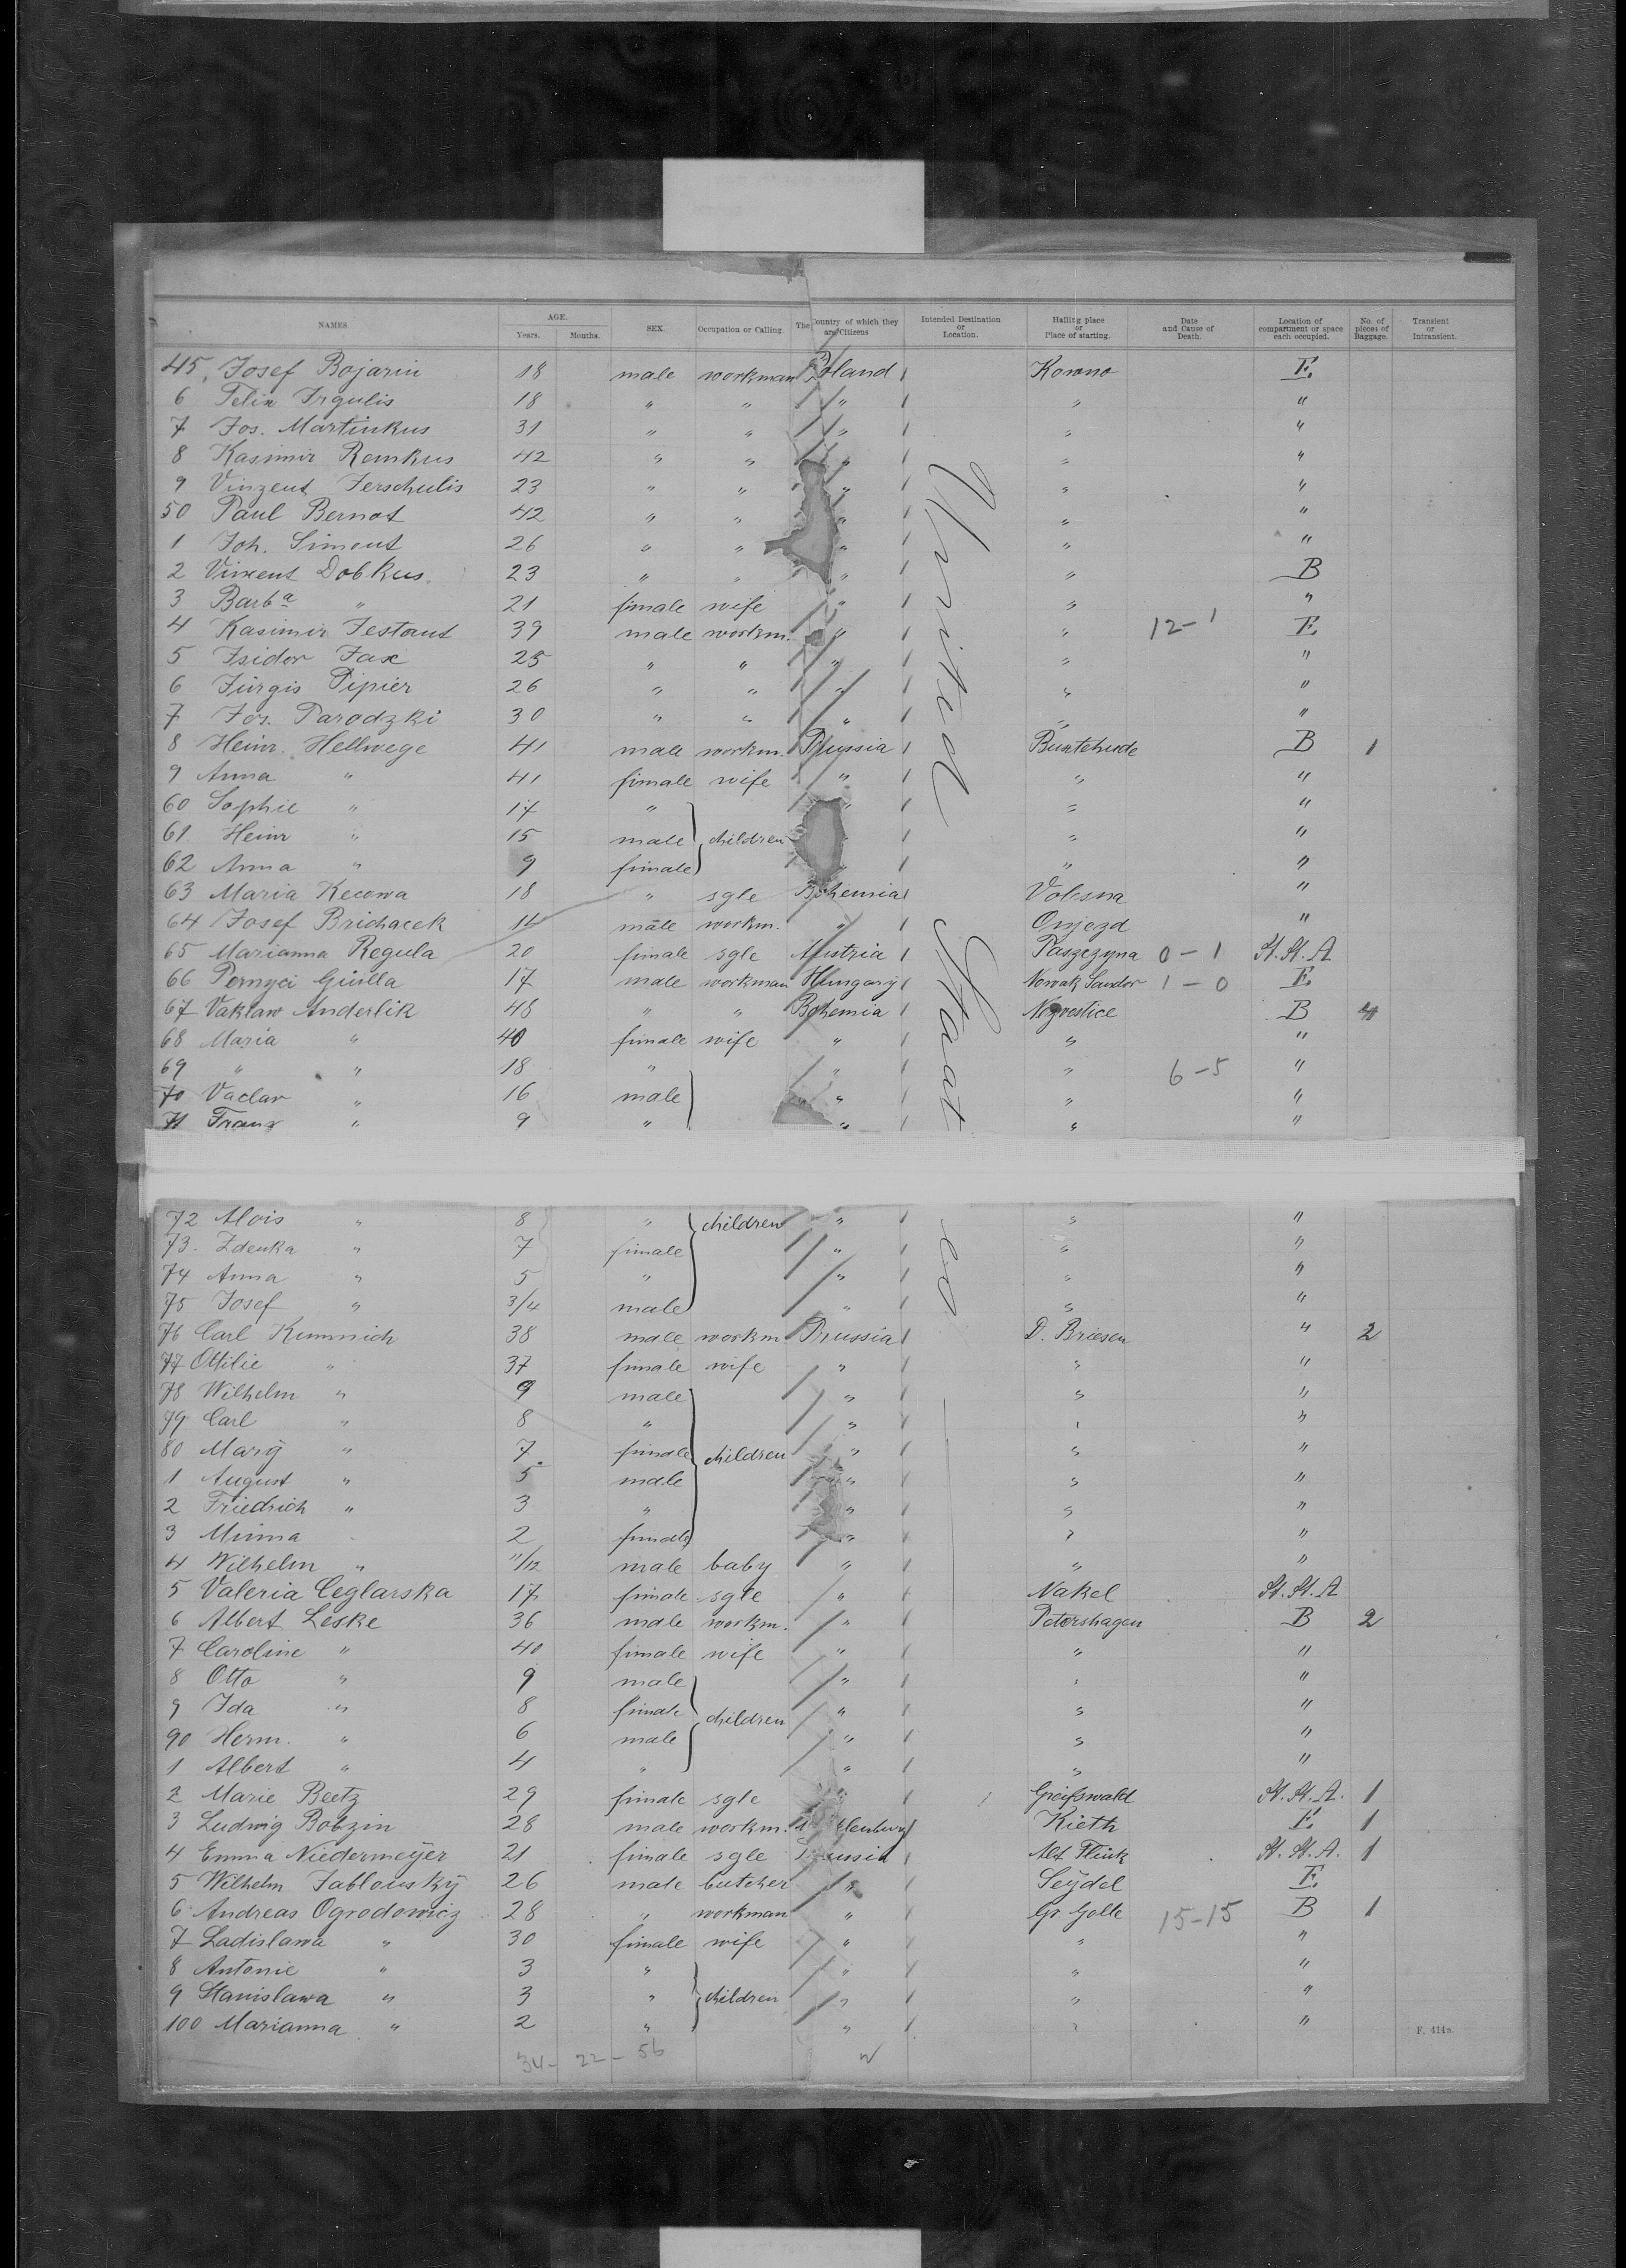 NAMES. AGE. Years. Months. SEX. Occupation or Calling. The Country of which they are Citizens Intended Destination or Location. Hailing place or Place of starting. Date and Cause of Death. Location of compartment or space each occupied. No. of pieces of Baggage. Transient or Intransient.
45 Josef Bojarin 18 male workman Poland Kowno E.
6 Felix Irgulis 18 " " " " "
7 Jos. Martinkus 31 " " " " "
8 Kasimir Remkus 42 " " " " "
9 Vinzent Jerschulis 23 " " " " "
50 Paul Bernot 42 " " " " "
1 Joh. Simout 26 " " " " "
2 Vincent Dobkus 23 " " " " B
3 Barba " 21 fimale wife " " "
4 Kasimir Jestout 39 male workm. " " 12-1 E.
5 Isidor Jax 25 " " " " "
6 Jürgis Pipier 26 " " " " "
7 Jos. Parodzki 30 " " " " "
8 Heinr. Hellwege 41 male workm. Prussia Buxtehude B 1
9 Anna " 41 fimale wife " " "
60 Sophie " 17 " " "
61 Heinr " 15 male children " "
62 Anna " 9 fimale " " "
63 Maria Kecowa 18 " sgle Bohemia Volesna "
64 Josef Brichacek 14 male workm. " Onjezd "
65 Marianna Regula 20 fimale sgle Austria Paszczyna 0-1 St. St. A
66 Pornyci Giulla 17 male workman Hungary Nowak Sandor 1-0 E.
67 Vaklaw Anderlik 48 " " Bohemia Negvestice B 4
68 Maria " 40 fimale wife " " "
69 " " 18 " " " 6-5 "
70 Vaclav " 16 male " " "
71 Franz " 9 " " " "
United Staates
72 Alois " 8 " children " " "
73. Zdenka " 7 fimale " " "
74 Anna " 5 " " " "
75 Josef " 3/4 male " " "
76 Carl Kimmich 38 male workm Prussia D. Briesen " 2
77 Ottilie " 37 fimale wife " " "
78 Wilhelm " 9 male " " "
79 Carl " 8 " " " "
80 Mary " 7 fimale children " " "
1 August " 5 male " " "
2 Friedrich " 3 " " " "
3 Minna 2 fimale " " "
4 Wilhelm " 11/12 male baby " " "
5 Valeria Ceglarska 17 fimale sgle " Nakel St. St. A
6 Albert Leske 36 male workm. " Petershagen B 2
7 Caroline " 40 fimale wife " " "
8 Otto " 9 male " " "
9 Ida " 8 fimale children " " "
90 Herm. " 6 male " " "
1 Albert " 4 " " " "
2 Marie Beetz 29 fimale sgle " Greifswald St. St. A. 1
3 Ludwig Bobzin 28 male workm. Kieth E. 1
4 Emma Niedermeÿer 21 fimale sgle Prussia Alt Flük St. St. A. 1
5 Wilhelm Jablonskÿ 26 male butcher " Seÿdel E.
6 Andreas Ogrodowicz 28 " workman " Gr. Golle 15-15 B 1
7 Ladislawa " 30 fimale wife " " "
8 Antonie " 3 " " " "
9 Stanislawa " 3 " children " " "
100 Marianna " 2 " " " "
F. 414a.
34 - 22 - 56